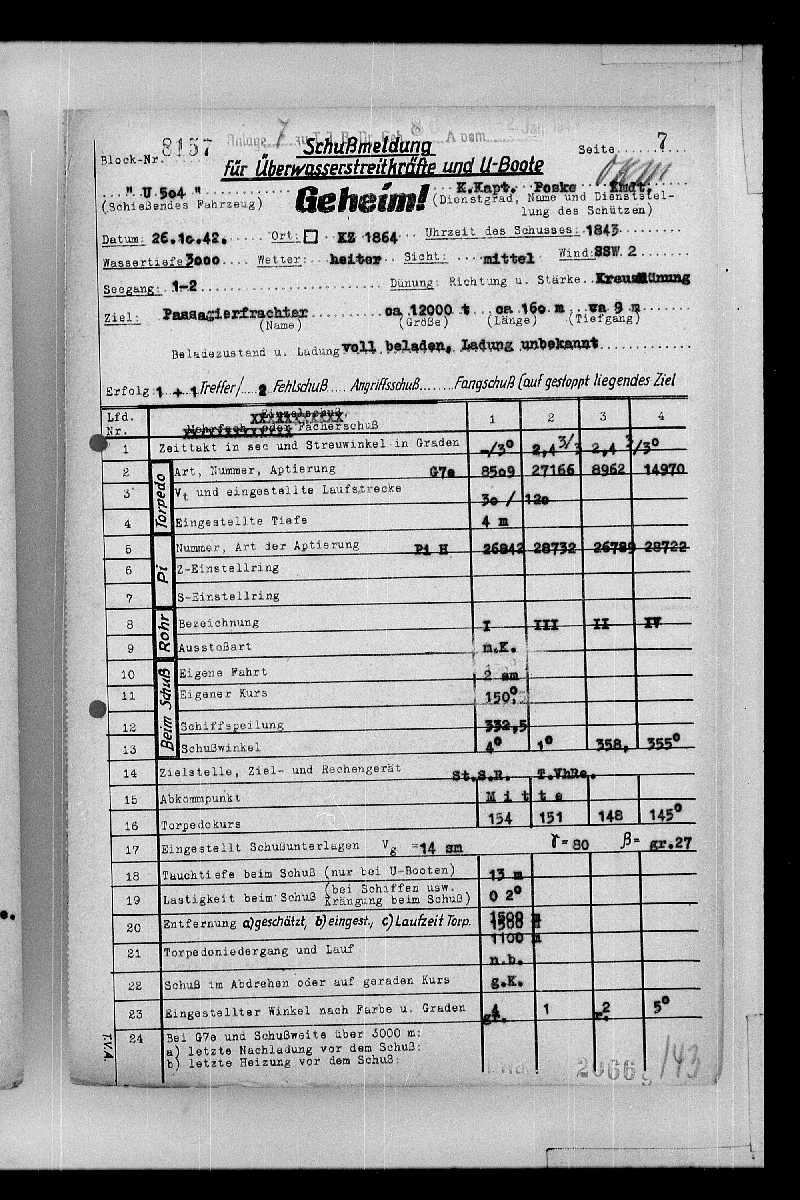 8157 Anlage 7
Schußmeldung
Block-Nr. Seite 7
für Überwasserstreitkräfte und U-Boote
OKM
" U 504 " Geheim! K.Kapt. Poske Kmdt.
(Schießendes Fahrzeug) (Dienstgrad, Name und Dienststel-
lung des Schützen)
Datum: 26.10.42. Ort: □ KZ 1864 Uhrzeit des Schusses: 1843
Wassertiefe 3000 Wetter: heiter Sicht: mittel Wind: SSW. 2
Seegang: 1-2 Dünung: Richtung u. Stärke
Ziel: Passagierfrachter ca 12000 t ca 160 m, 9 m
(Name) (Größe) (Länge) (Tiefgang)
Beladezustand u. Ladung voll beladen, Ladung unbekannt
Erfolg 1 + 1 Treffer/ 2 Fehlschuß Angriffsschuß Fangschuß (auf gestoppt liegendes Ziel
Lfd. Nr. Mehrfach oder Fächerschuß 1 2 3 4
1 Zeittakt in sec und Streuwinkel in Graden -/3° 2,4 3/3 2,4 3/3°
Torpedo
2 Art, Nummer, Aptierung G7e 8509 27166 8962 14970
3 Vt und eingestellte Laufstrecke 30 / 120
4 Eingestellte Tiefe 4 m
Pi
5 Nummer, Art der Aptierung Pi H 26842 28732 26789 28722
6 Z-Einstellring
7 S-Einstellring
Rohr
8 Bezeichnung I III II IV
9 Ausstoßart n.K.
Beim Schuß
10 Eigene Fahrt 2 sm
11 Eigener Kurs 150°
12 Schiffspeilung 332,5
13 Schußwinkel 4° 1° 358, 355°
14 Zielstelle, Ziel- und Rechengerät St.S.R. T.VhRe.
15 Abkommpunkt M i t t e
16 Torpedokurs 154 151 148 145°
17 Eingestellt Schußunterlagen Vg =14 sm γ= 80 β= gr.27
18 Tauchtiefe beim Schuß (nur bei U-Booten) 13 m
19 Lastigkeit beim Schuß (bei Schiffen usw. Krängung beim Schuß) 0 2°
20 Entfernung a) geschätzt, b) eingest., c) Laufzeit Torp. 1500 m
1500 m
1100 m
21 Torpedoniedergang und Lauf n.b.
22 Schuß im Abdrehen oder auf geraden Kurs g.K.
23 Eingestellter Winkel nach Farbe u. Graden gr. 4 1 r. 2 5°
24 Bei G7e und Schußweite über 3000 m:
a) letzte Nachladung vor dem Schuß:
b) letzte Heizung vor dem Schuß:
T.V.A.
143